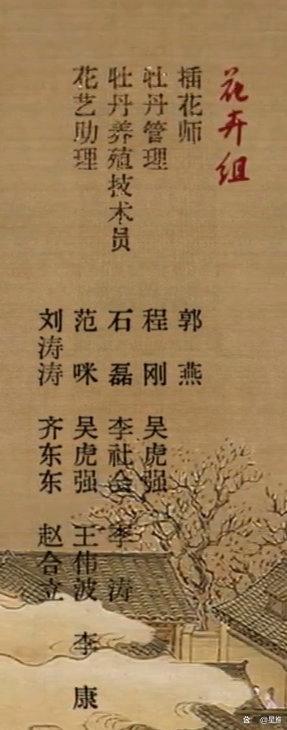 花卉组
插花师 郭燕
牡丹管理 程刚 吴虎强
牡丹养殖技术员 石磊 李社会 李涛
花艺助理 范咪 吴虎强 王伟波 李康
刘涛涛 齐东东 赵合立
@星推